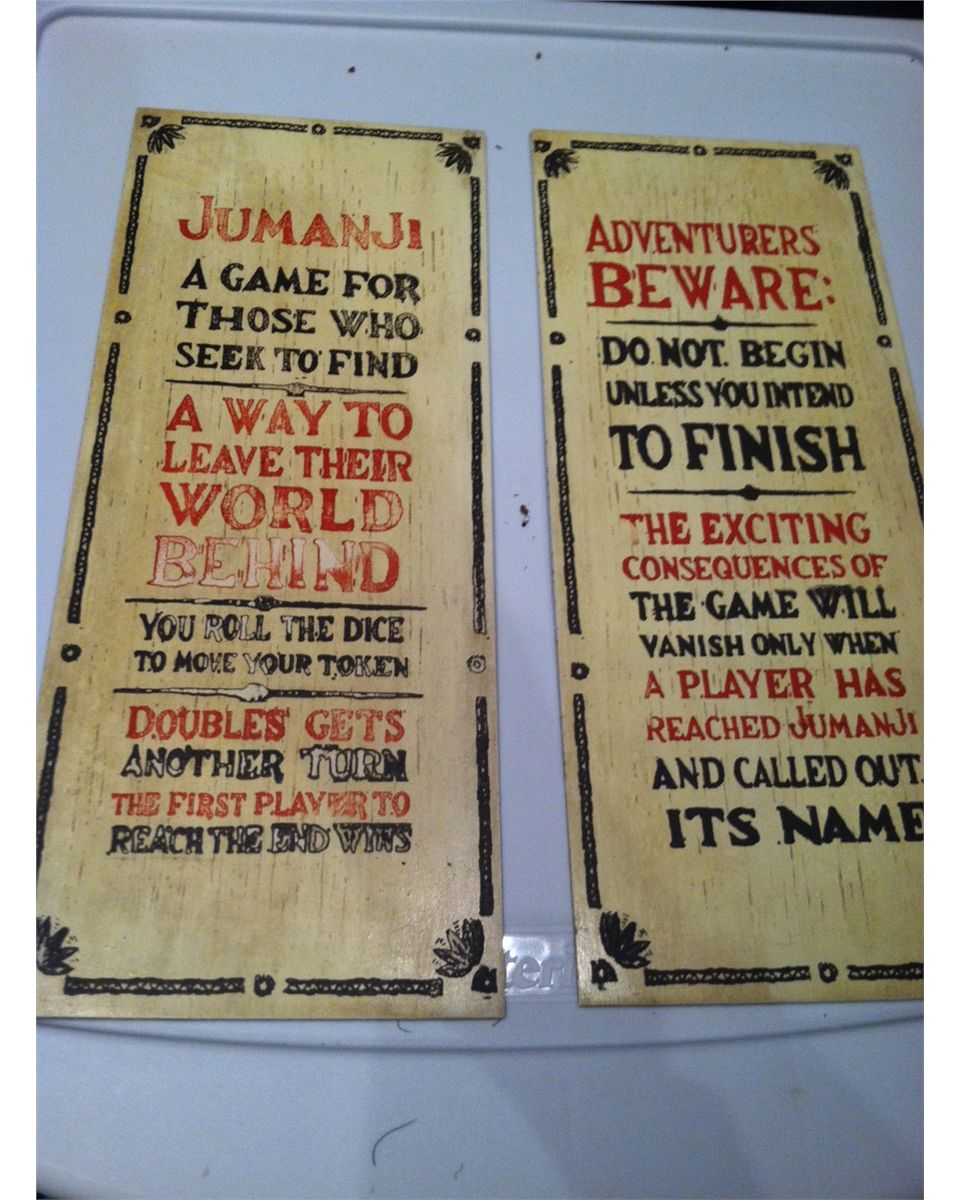 JUMANJI
A GAME FOR
THOSE WHO
SEEK TO FIND
A WAY TO
LEAVE THEIR
WORLD
BEHIND
YOU ROLL THE DICE
TO MOVE YOUR TOKEN
DOUBLES GETS
ANOTHER TURN
THE FIRST PLAYER TO
REACH THE END WINS
ADVENTURERS
BEWARE:
DO NOT BEGIN
UNLESS YOU INTEND
TO FINISH
THE EXCITING
CONSEQUENCES OF
THE GAME WILL
VANISH ONLY WHEN
A PLAYER HAS
REACHED JUMANJI
AND CALLED OUT
ITS NAME